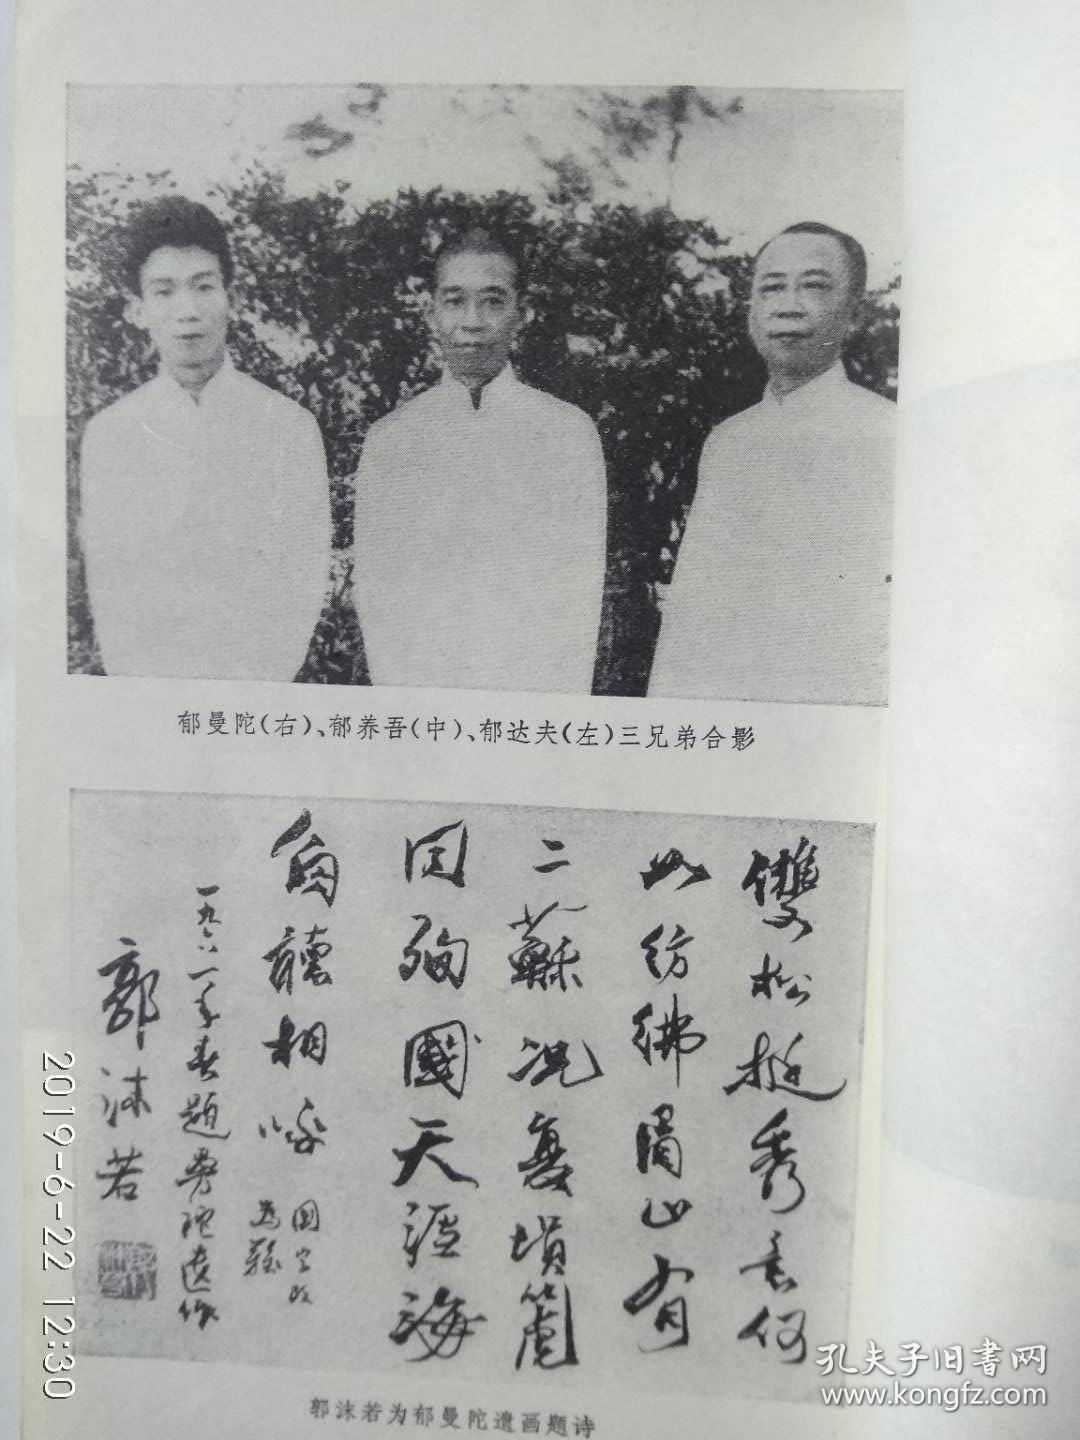 郁曼陀(右)、郁养吾(中)、郁达夫(左)三兄弟合影
雙松挺秀意何
如彷彿眉山有
二蘇况复塤篪
同殉國天涯海
角 相呼
國字改
為難
一九六一年春題曼陀遺作
郭沫若
郭沫若为郁曼陀遗画题诗
2019-6-22 12:30
孔夫子旧书网
www.kongfz.com